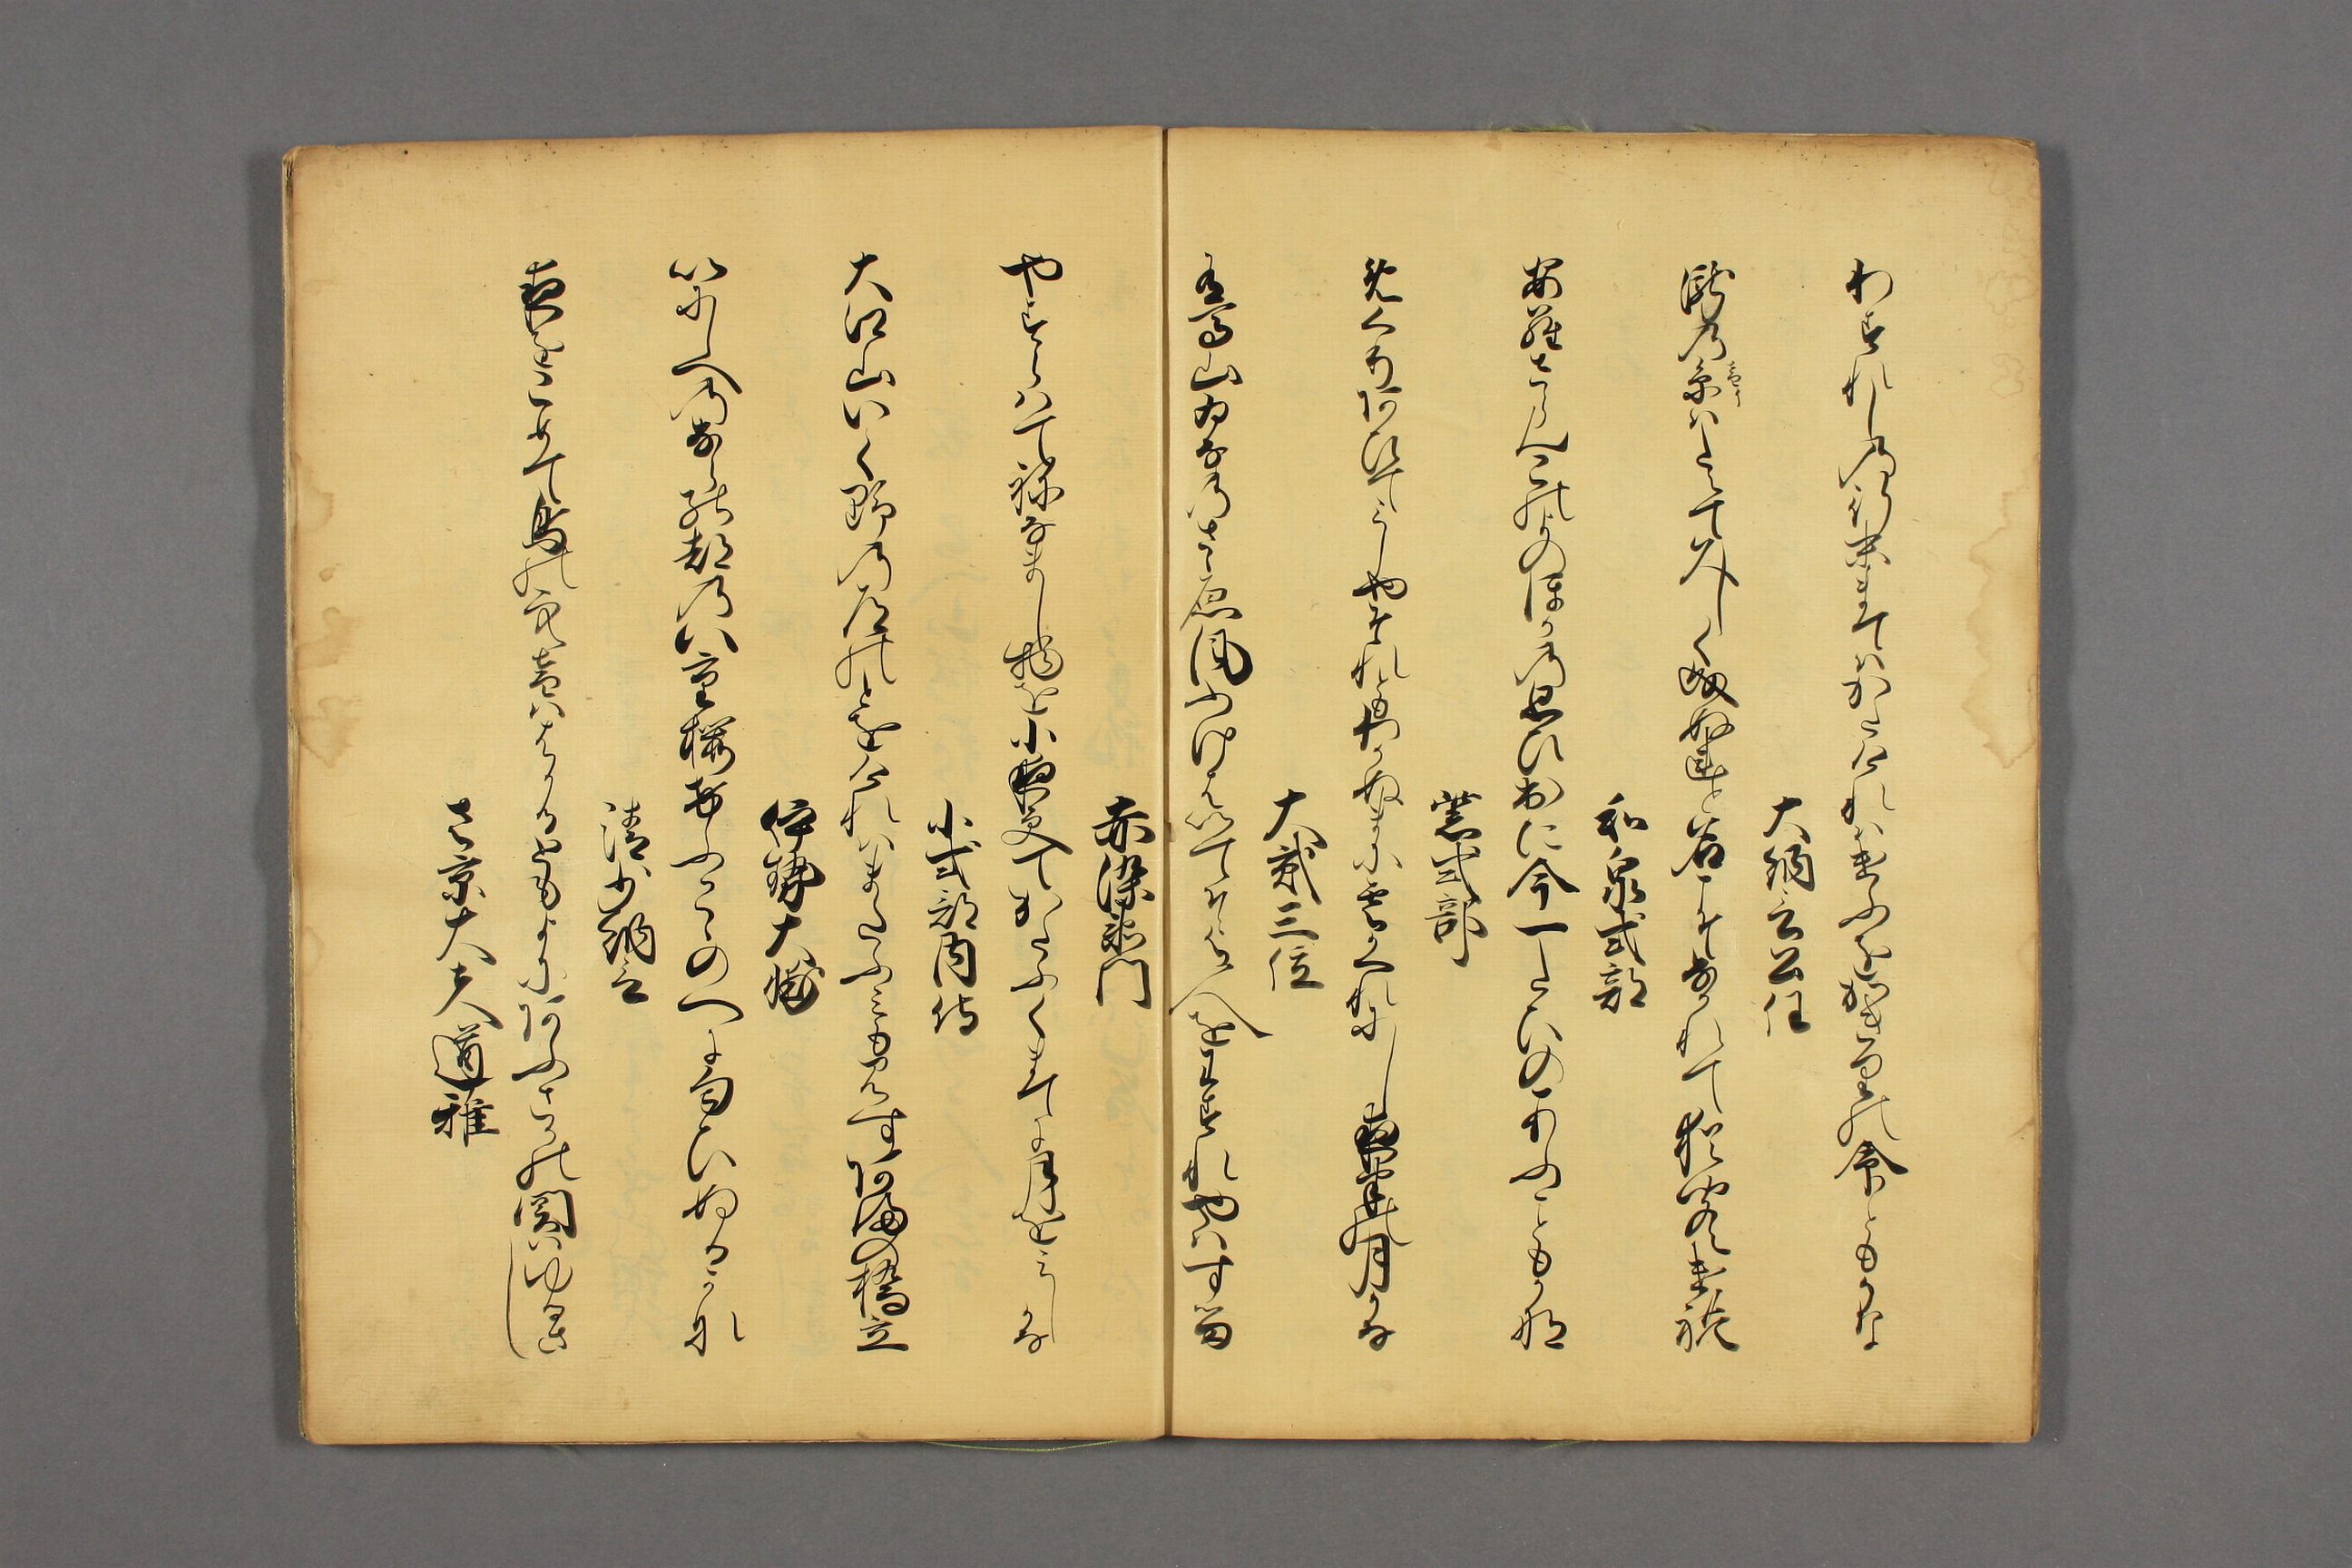 わすれしの行末まてはかたけれはけふをかきりの命ともかな
大納言公任
瀧の糸はたえて久しく成ぬれと名こそなかれて猶聞えけれ
音イ
和泉式部
安羅さらんこのよのほかの思ひ出に今一たひのあふこともかな
紫式部
免くり阿ひてみしやそれ共わかぬまに雲かくれにし夜半の月かな
大貳三位
有馬山ゐなのさゝ原風ふけはいてそよ人をわすれやはする
赤染衛門
やすらはて祢なまし物を小夜更てかたふくまての月をみしかな
小式部内侍
大江山いく野の道のとをけれはまたふみもみす阿満の橋立
伊勢大輔
いにしへのなら能都の八重桜けふこゝのへに匂ひぬるかな
清少納言
夜をこめて鳥の空音ははかるともよに阿ふさかの関はゆるさし
左京大夫道雅